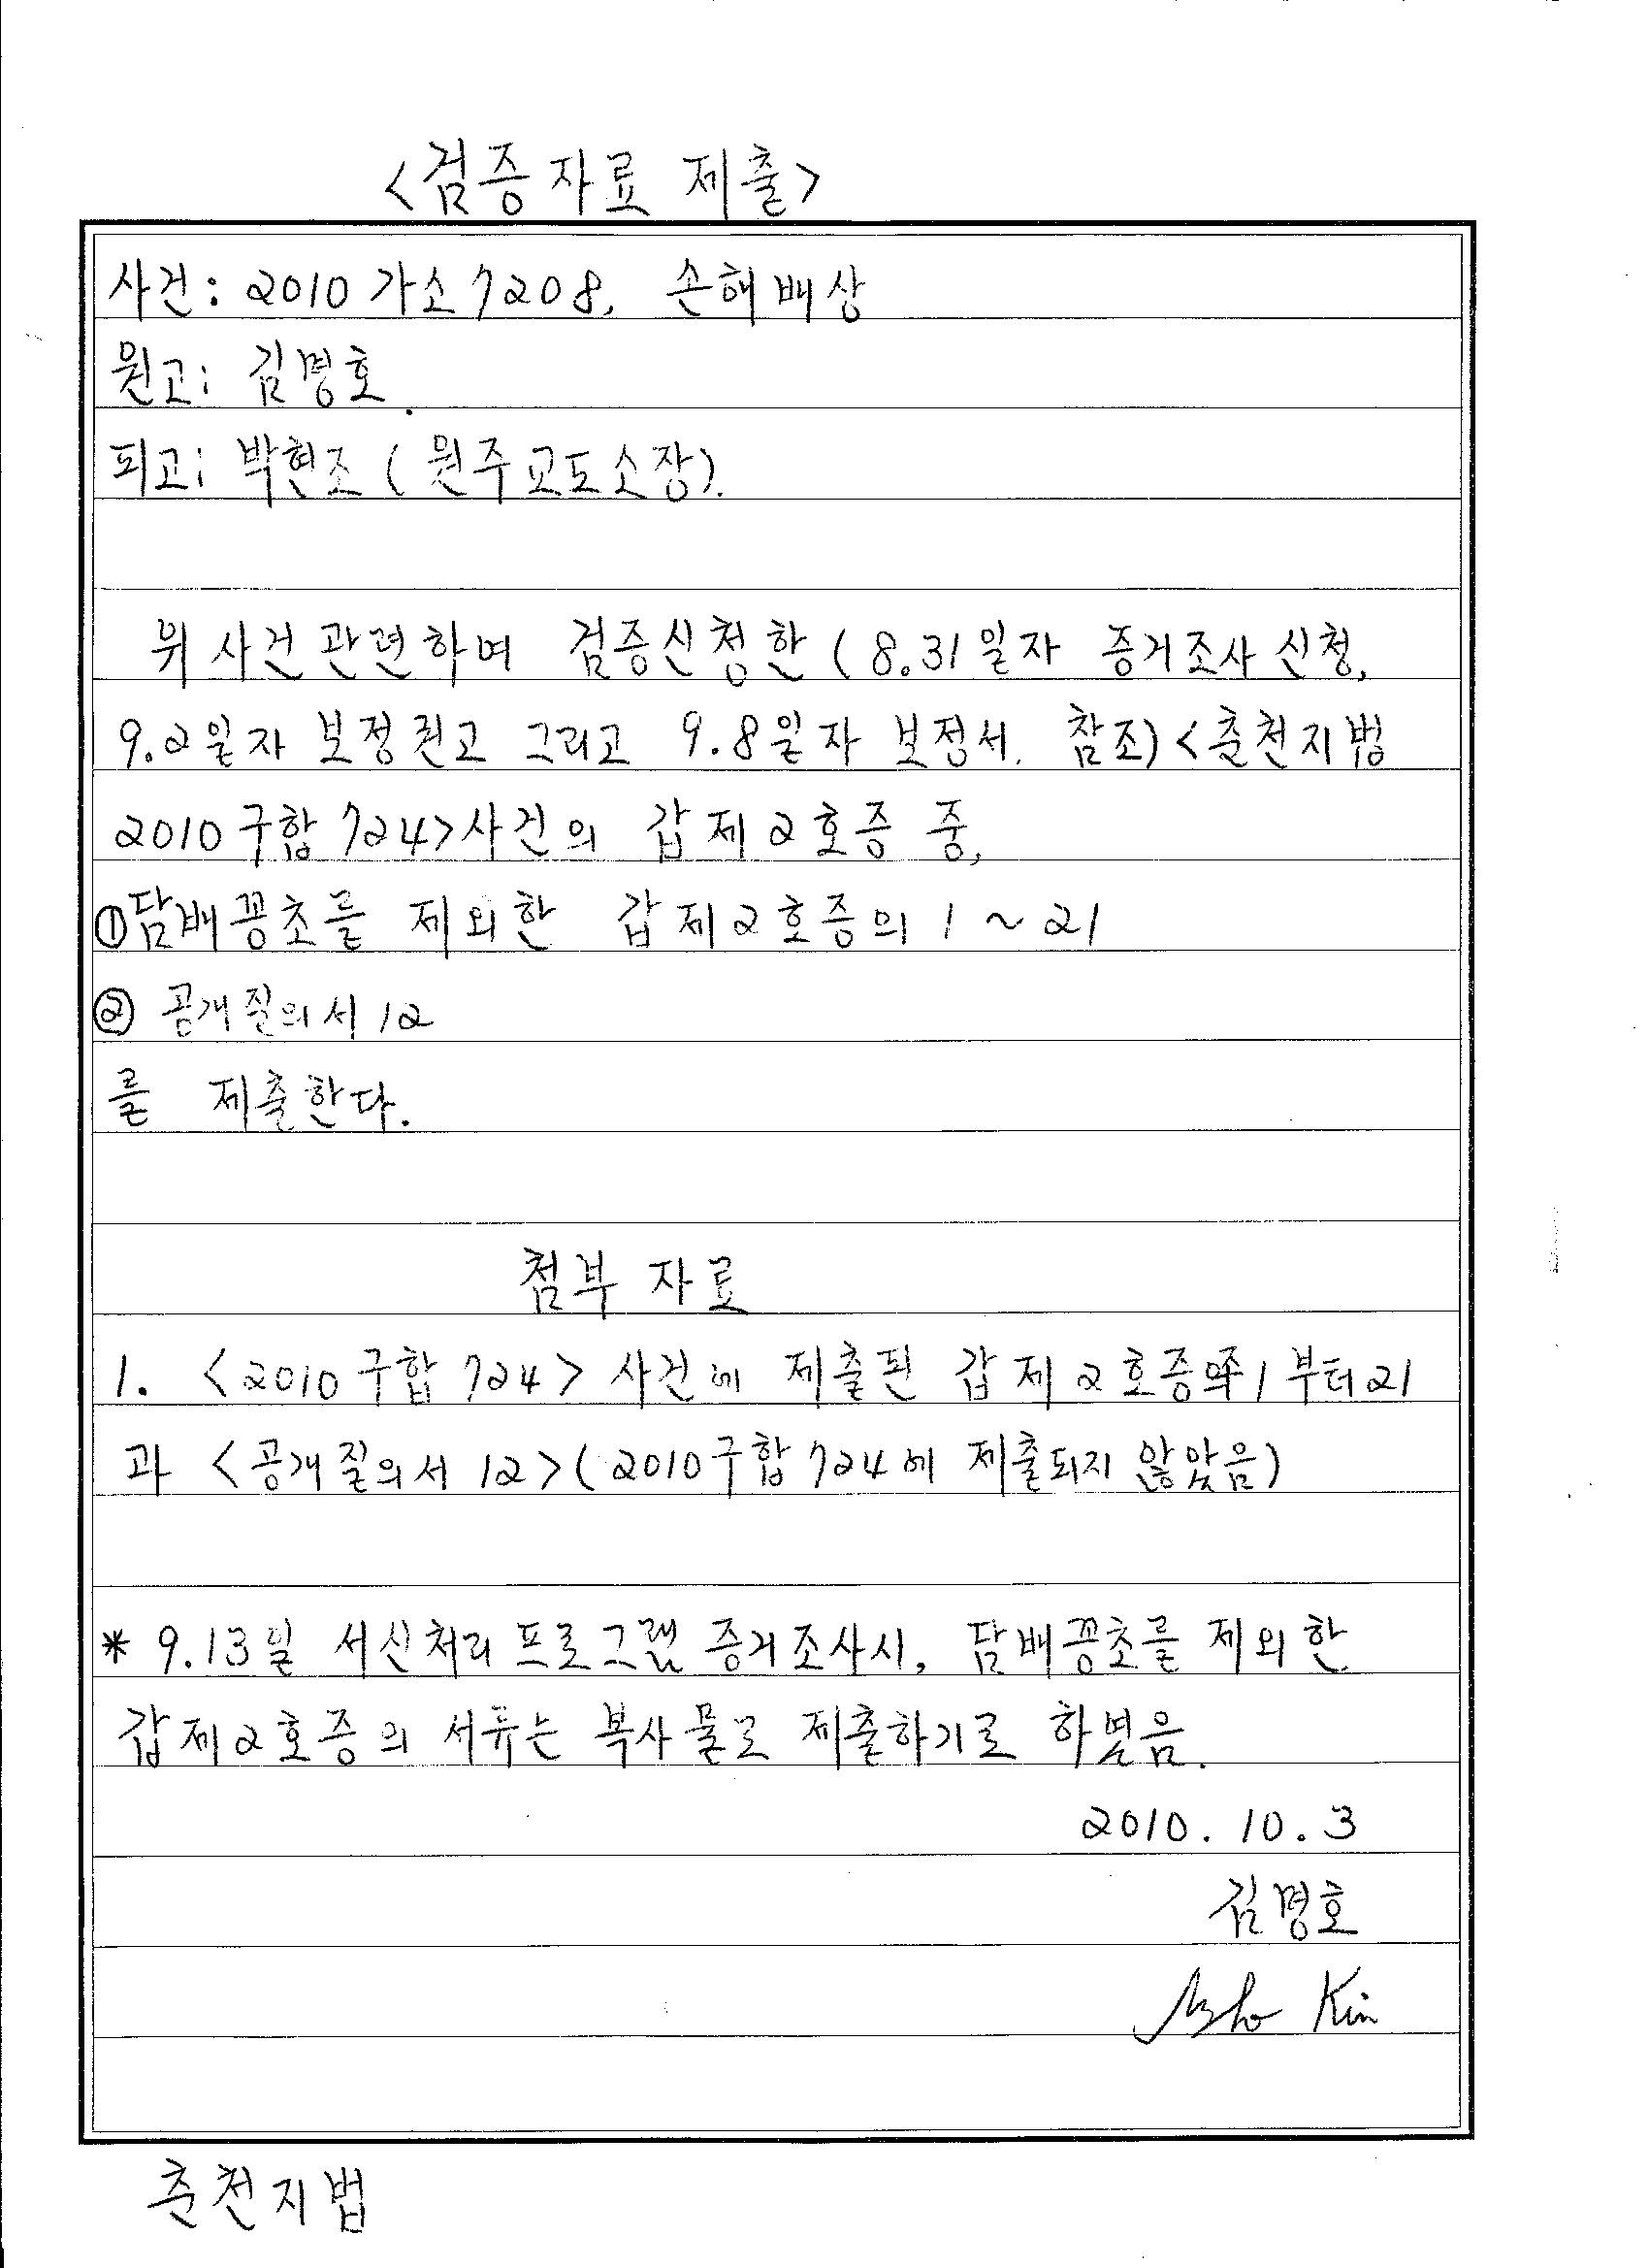 <검증자료 제출>
사건: 2010가소7208, 손해배상
원고: 김명호
피고: 박현조 (원주교도소장).
위 사건 관련하여 검증신청한 (8.31일자 증거조사 신청,
9.2일자 보정권고 그리고 9.8일자 보정서. 참조) <춘천지법
2010구합724>사건의 갑제2호증 중,
①담배꽁초를 제외한 갑제2호증의 1 ~ 21
② 공개질의서 12
를 제출한다.
첨부 자료
1. <2010구합724> 사건에 제출된 갑제2호증의 1부터 21
과 <공개질의서 12>(2010구합724에 제출되지 않았음)
* 9.13일 서신처리 프로그램 증거조사시, 담배꽁초를 제외한
갑제2호증의 서류는 복사물로 제출하기로 하였음.
2010. 10. 3
김명호
Kim
춘천지법